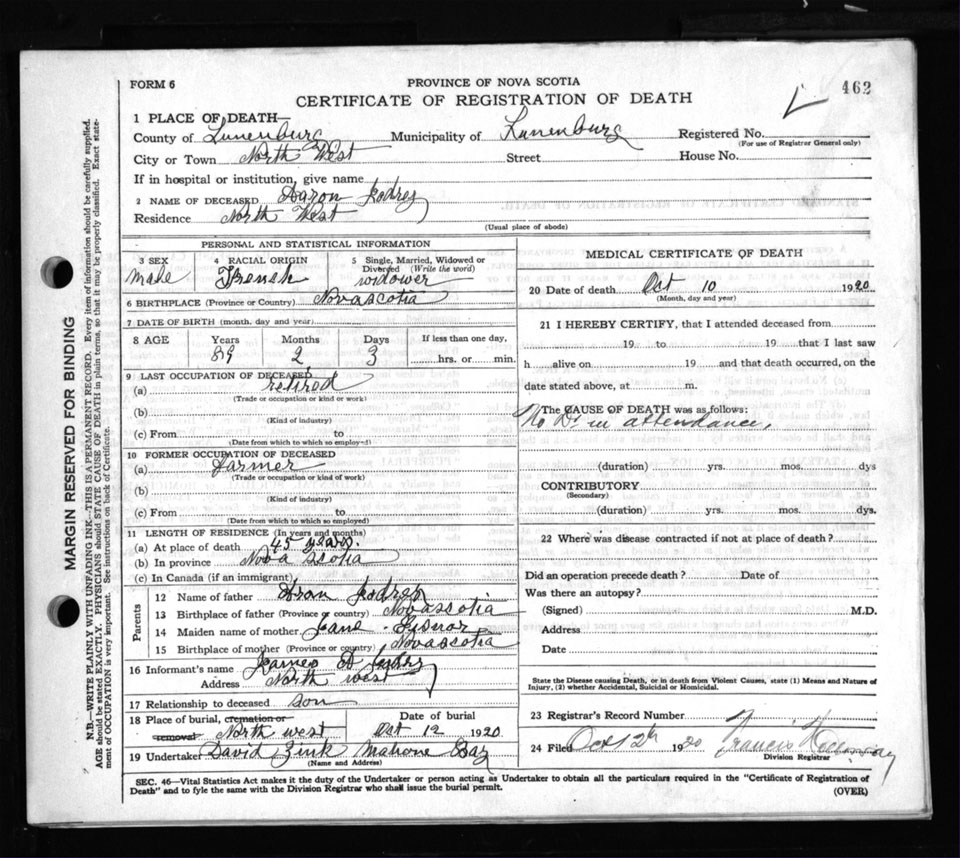 FORM 6
PROVINCE OF NOVA SCOTIA
462
CERTIFICATE OF REGISTRATION OF DEATH
1 PLACE OF DEATH
County of Lunenburg Municipality of Lunenburg Registered No.
(For use of Registrar General only)
City or Town North West Street House No.
If in hospital or institution, give name
2 NAME OF DECEASED Aaron
Residence North West
(Usual place of abode)
PERSONAL AND STATISTICAL INFORMATION
3 SEX male 4 RACIAL ORIGIN 5 Single, Married, Widowed or Divorced (Write the word) widower
6 BIRTHPLACE (Province or Country) Novascotia
7 DATE OF BIRTH (month, day and year)
8 AGE Years 89 Months 2 Days 3 If less than one day, hrs. or min.
9 LAST OCCUPATION OF DECEASED
(a) retired
(Trade or occupation or kind or work)
(b)
(Kind of industry)
(c) From to
(Date from which to which so employed)
10 FORMER OCCUPATION OF DECEASED
(a) farmer
(Trade or occupation or kind of work)
(b)
(Kind of industry)
(c) From to
(Date from which to which so employed)
11 LENGTH OF RESIDENCE (In years and months)
(a) At place of death 45 years.
(b) In province Nova Scotia
(c) In Canada (if an immigrant)
Parents
12 Name of father
13 Birthplace of father (Province or country) Novascotia
14 Maiden name of mother Jane
15 Birthplace of mother (Province or country) Novascotia
16 Informant's name James
Address North west
17 Relationship to deceased son
18 Place of burial, cremation or removal North west Date of burial Oct 12 1920
19 Undertaker David Zink Mahone Bay
(Name and Address)
MEDICAL CERTIFICATE OF DEATH
20 Date of death Oct 10 1920
(Month, day and year)
21 I HEREBY CERTIFY, that I attended deceased from
19 to 19 that I last saw
h alive on 19 and that death occurred, on the
date stated above, at m.
The CAUSE OF DEATH was as follows:
No Dr in attendance,
(duration) yrs. mos. dys
CONTRIBUTORY
(Secondary)
(duration) yrs. mos. dys.
22 Where was disease contracted if not at place of death?
Did an operation precede death? Date of
Was there an autopsy?
(Signed) M.D.
Address
Date
State the Disease causing Death, or in death from Violent Causes, state (1) Means and Nature of
Injury, (2) whether Accidental, Suicidal or Homicidal.
23 Registrar's Record Number
24 Filed Oct 12th 1920 Francis
Division Registrar
SEC. 46—Vital Statistics Act makes it the duty of the Undertaker or person acting as Undertaker to obtain all the particulars required in the "Certificate of Registration of
Death" and to fyle the same with the Division Registrar who shall issue the burial permit.
(OVER)
MARGIN RESERVED FOR BINDING
N.B.—WRITE PLAINLY WITH UNFADING INK—THIS IS A PERMANENT RECORD. Every item of information should be carefully supplied.
AGE should be stated EXACTLY. PHYSICIANS should STATE CAUSE OF DEATH in plain terms, so that it may be properly classified. Exact state-
ment of OCCUPATION is very important. See instructions on back of Certificate.